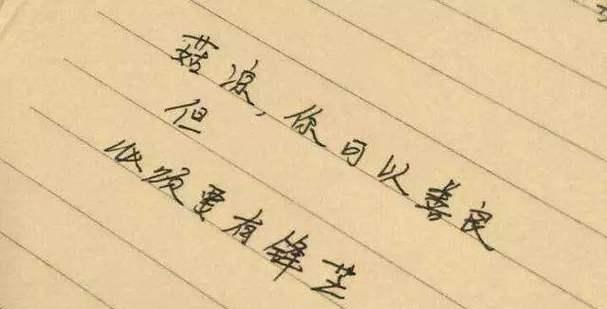 菇凉，你可以善良
但
必须要有锋芒